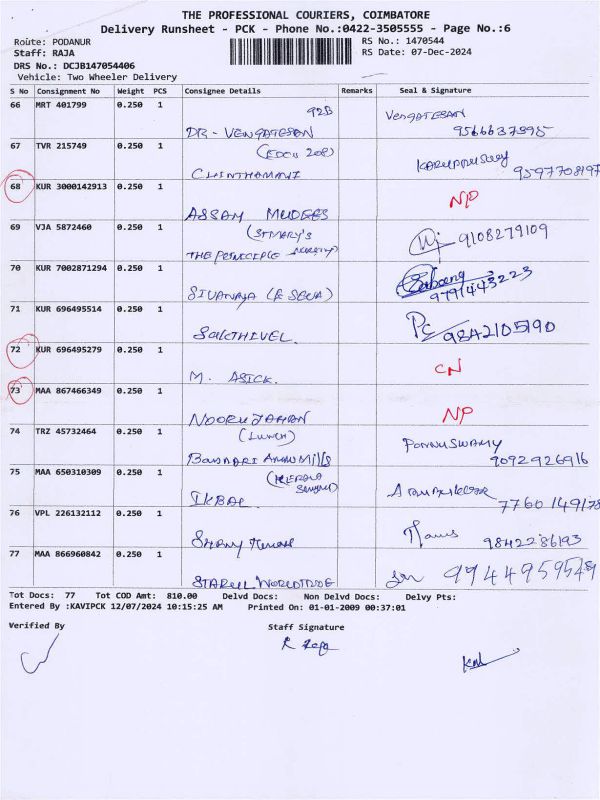 THE PROFESSIONAL COURIERS, COIMBATORE
Delivery Runsheet - PCK - Phone No.:0422-3505555 - Page No.:6
Route: PODANUR
RS No.: 1470544
Staff: RAJA
RS Date: 07-Dec-2024
DRS No.: DCJB147054406
Vehicle: Two Wheeler Delivery
S No Consignment No Weight PCS Consignee Details Remarks Seal & Signature
66 MRT 401799 0.250 1 92B
DR - VENGATESAN VENGATESAN
67 TVR 215749 0.250 1
CLINTHAMANI 9597708197
68 KUR 3000142913 0.250 1 NP
ASSAM MUDEES
69 VJA 5872460 0.250 1 (ST MARY'S 9108279109
THE PRINCIPLE
70 KUR 7002871294 0.250 1
SIVANAYA (E SEVA) 9791443223
71 KUR 696495514 0.250 1
SAKTHIVEL. 9842105190
72 KUR 696495279 0.250 1 CN
M. ASICK.
73 MAA 867466349 0.250 1 NP
NOORUJAHAN
74 TRZ 45732464 0.250 1 PONNUSWAMY
9092926916
75 MAA 650310309 0.250 1 (KERALA
IKBAL 7760149178
76 VPL 226132112 0.250 1
9842286193
77 MAA 866960842 0.250 1
9944959549
Tot Docs: 77 Tot COD Amt: 810.00 Delvd Docs: Non Delvd Docs: Delvy Pts:
Entered By :KAVIPCK 12/07/2024 10:15:25 AM Printed On: 01-01-2009 00:37:01
Verified By Staff Signature